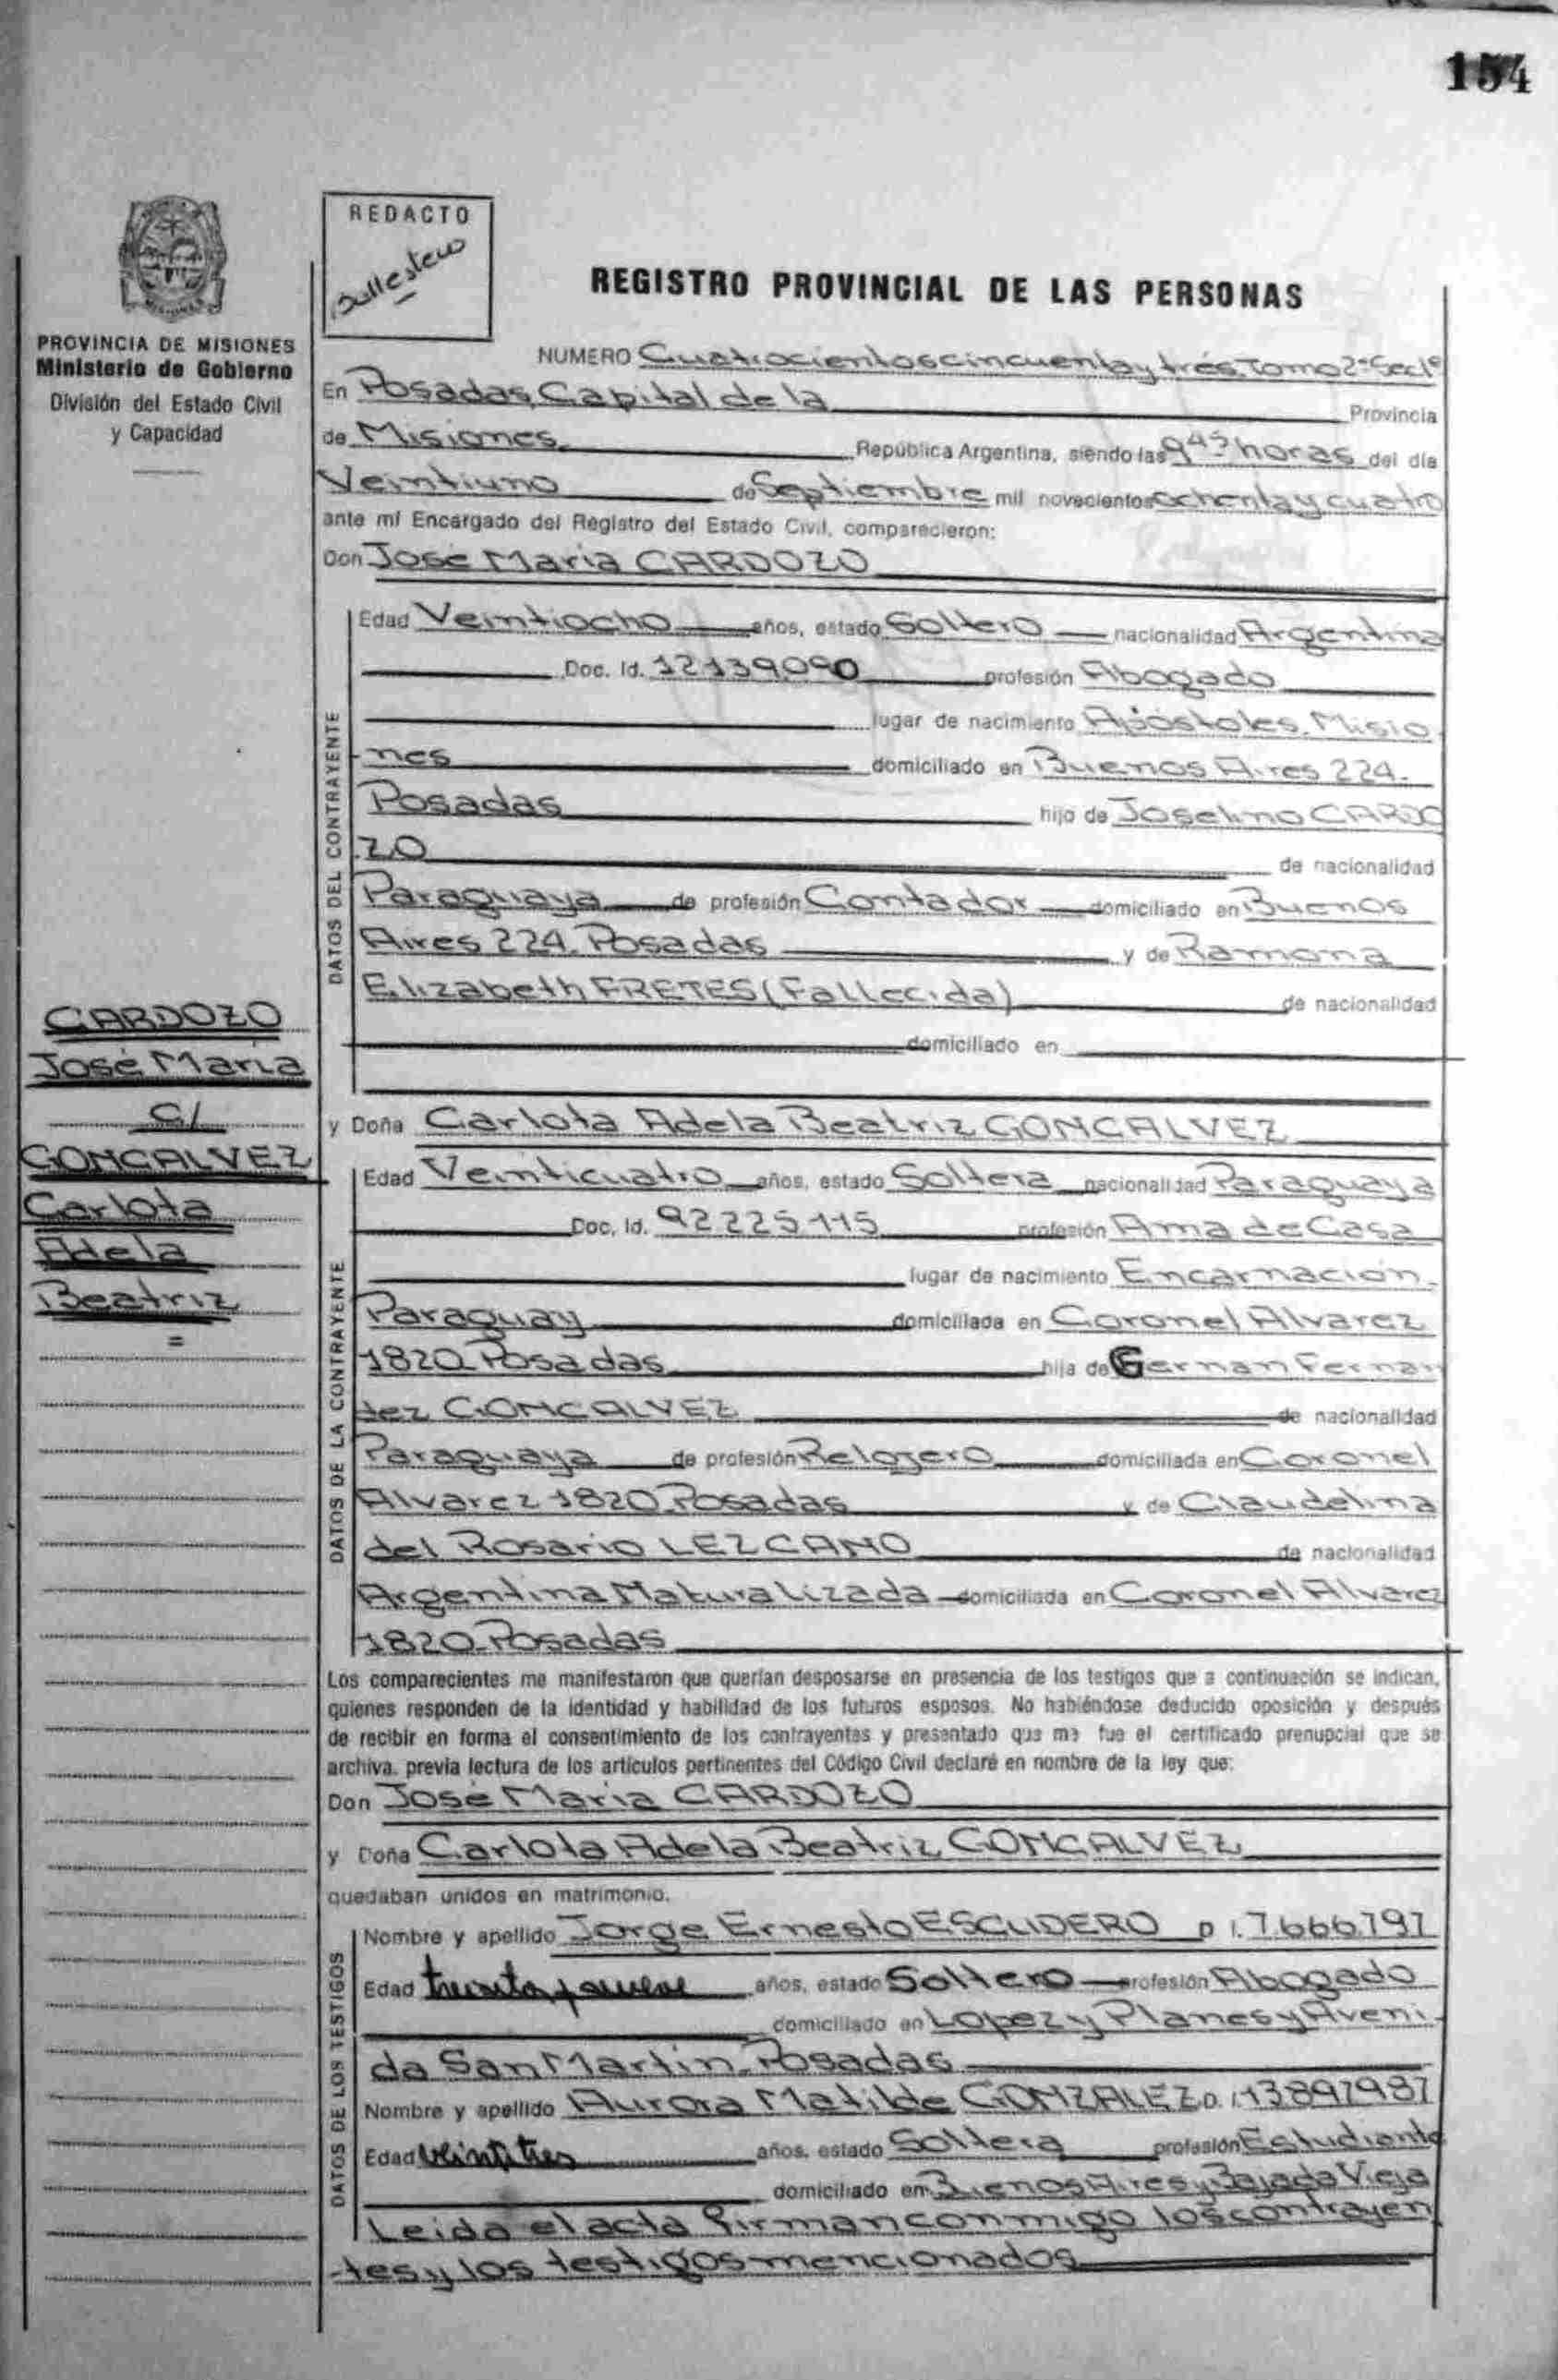 154
REDACTO
Ballestero
REGISTRO PROVINCIAL DE LAS PERSONAS
PROVINCIA DE MISIONES
Ministerio de Gobierno
División del Estado Civil
y Capacidad
NUMERO Cuatrocientos cincuenta y trés, Tomo 2º Sec 1º
En Posadas, Capital de la Provincia
de Misiones República Argentina, siendo las 9 45 horas del día
Veintiuno de Septiembre mil novecientos Ochenta y cuatro
ante mí Encargado del Registro del Estado Civil, comparecieron:
Don José María CARDOZO
DATOS DEL CONTRAYENTE
Edad Veintiocho años, estado Soltero nacionalidad Argentina
Doc. Id. 12139.090 profesión Abogado
lugar de nacimiento Apóstoles, Misio
nes domiciliado en Buenos Aires 224-
Posadas hijo de Joselino CARDO
ZO de nacionalidad
Paraguaya de profesión Contador domiciliado en Buenos
Aires 224. Posadas y de Ramona
Elizabeth FRETES (Fallecida) de nacionalidad
domiciliado en
CARDOZO
José María
C/
GONCALVEZ
Carlota
Adela
Beatriz
=
y Doña Carlota Adela Beatriz GONCALVEZ
DATOS DE LA CONTRAYENTE
Edad Veinticuatro años, estado Soltera nacionalidad Paraguaya
Doc. Id. 92225115 profesión Ama de Casa
lugar de nacimiento Encarnación-
Paraguay domiciliada en Coronel Alvarez
1820 Posadas hija de German Fernan
dez GONCALVEZ de nacionalidad
Paraguaya de profesión Relojero domiciliada en Coronel
Alvarez 1820 Posadas y de Claudelina
del Rosario LEZCANO de nacionalidad
Argentina Naturalizada domiciliada en Coronel Alvarez
1820-Posadas
Los comparecientes me manifestaron que querían desposarse en presencia de los testigos que a continuación se indican,
quienes responden de la identidad y habilidad de los futuros esposos. No habiéndose deducido oposición y después
de recibir en forma el consentimiento de los contrayentes y presentado que me fue el certificado prenupcial que se
archiva, previa lectura de los artículos pertinentes del Código Civil declaré en nombre de la ley que:
Don José María CARDOZO
y Doña Carlota Adela Beatriz GONCALVEZ
quedaban unidos en matrimonio.
DATOS DE LOS TESTIGOS
Nombre y apellido Jorge Ernesto ESCUDERO D I. 7.666.797
Edad treinta y nueve años, estado Soltero profesión Abogado
domiciliado en Lopez y Planes y Aveni-
da San Martín. Posadas
Nombre y apellido Aurora Matilde GONZALEZ D. I. 13897987
Edad veintitres años, estado Soltera profesión Estudiante
domiciliado en Buenos Aires y Bajada Vieja
Leida el acta firman conmigo los contrayen
-tes y los testigos mencionados